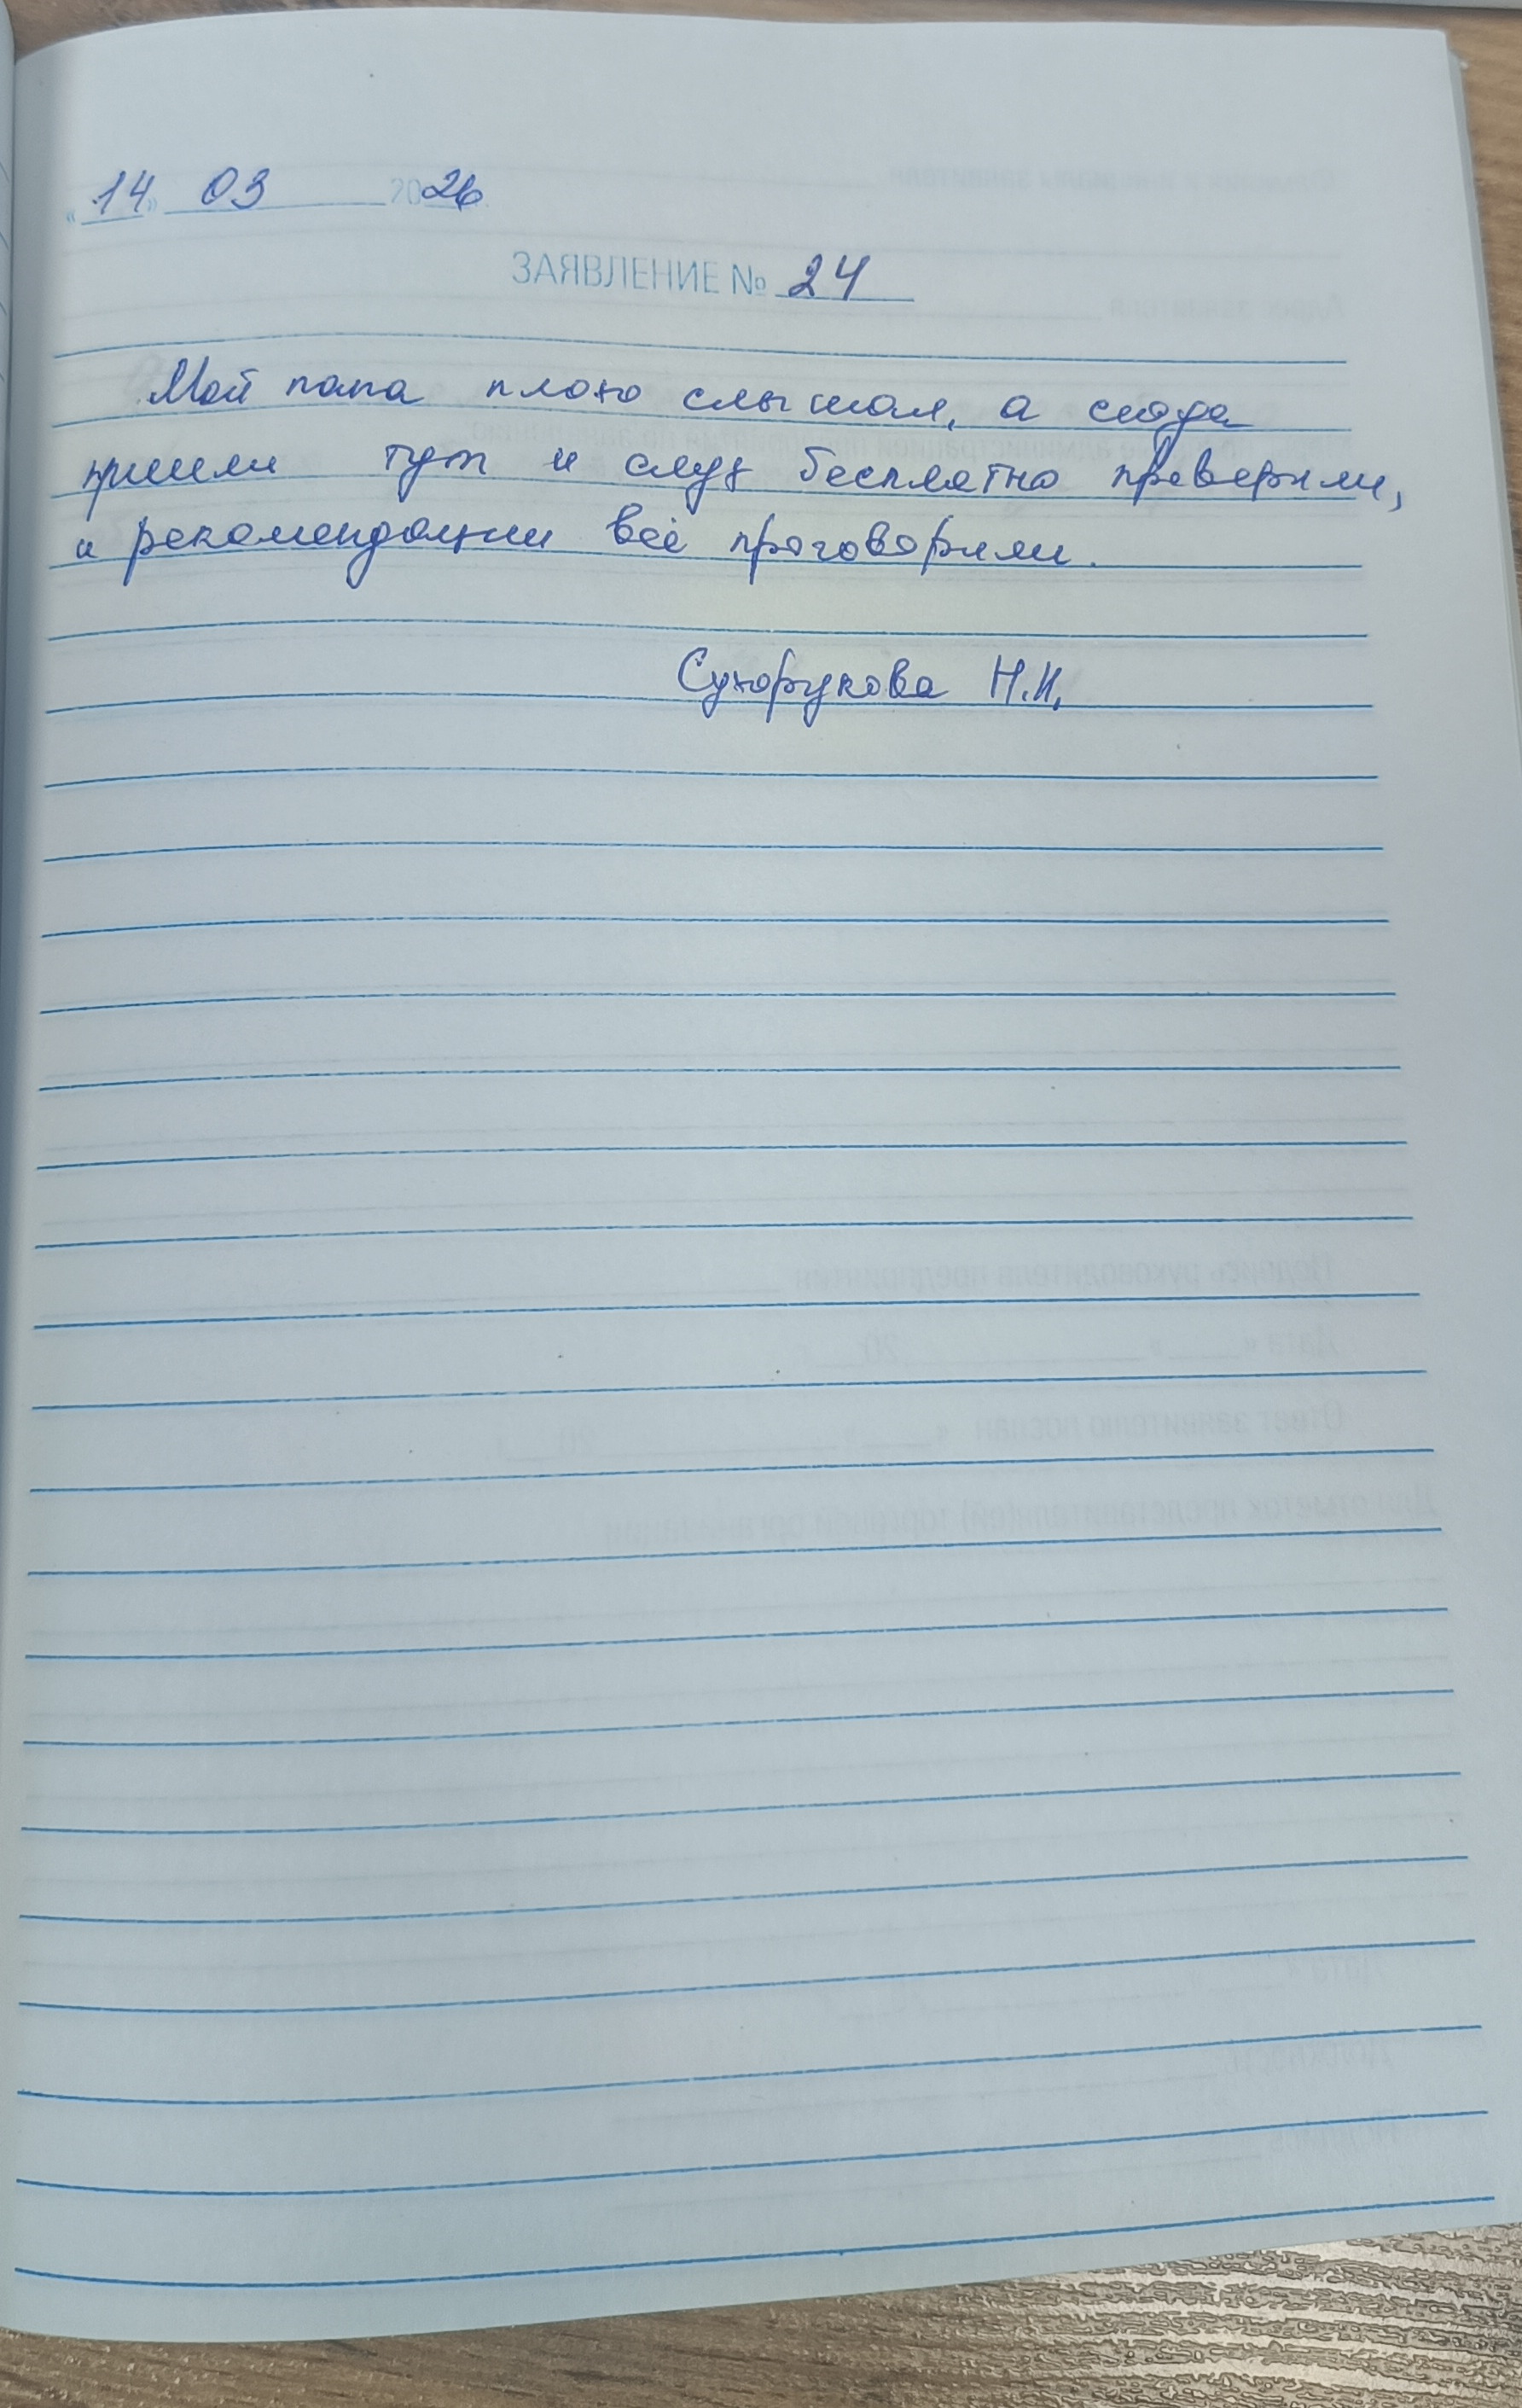 «14» 03 2026 г.
ЗАЯВЛЕНИЕ № 24
Мой папа плохо слышал, а сюда
пришли тут и слух бесплатно проверили,
и рекомендации всё проговорили.
Сухорукова Н.И.